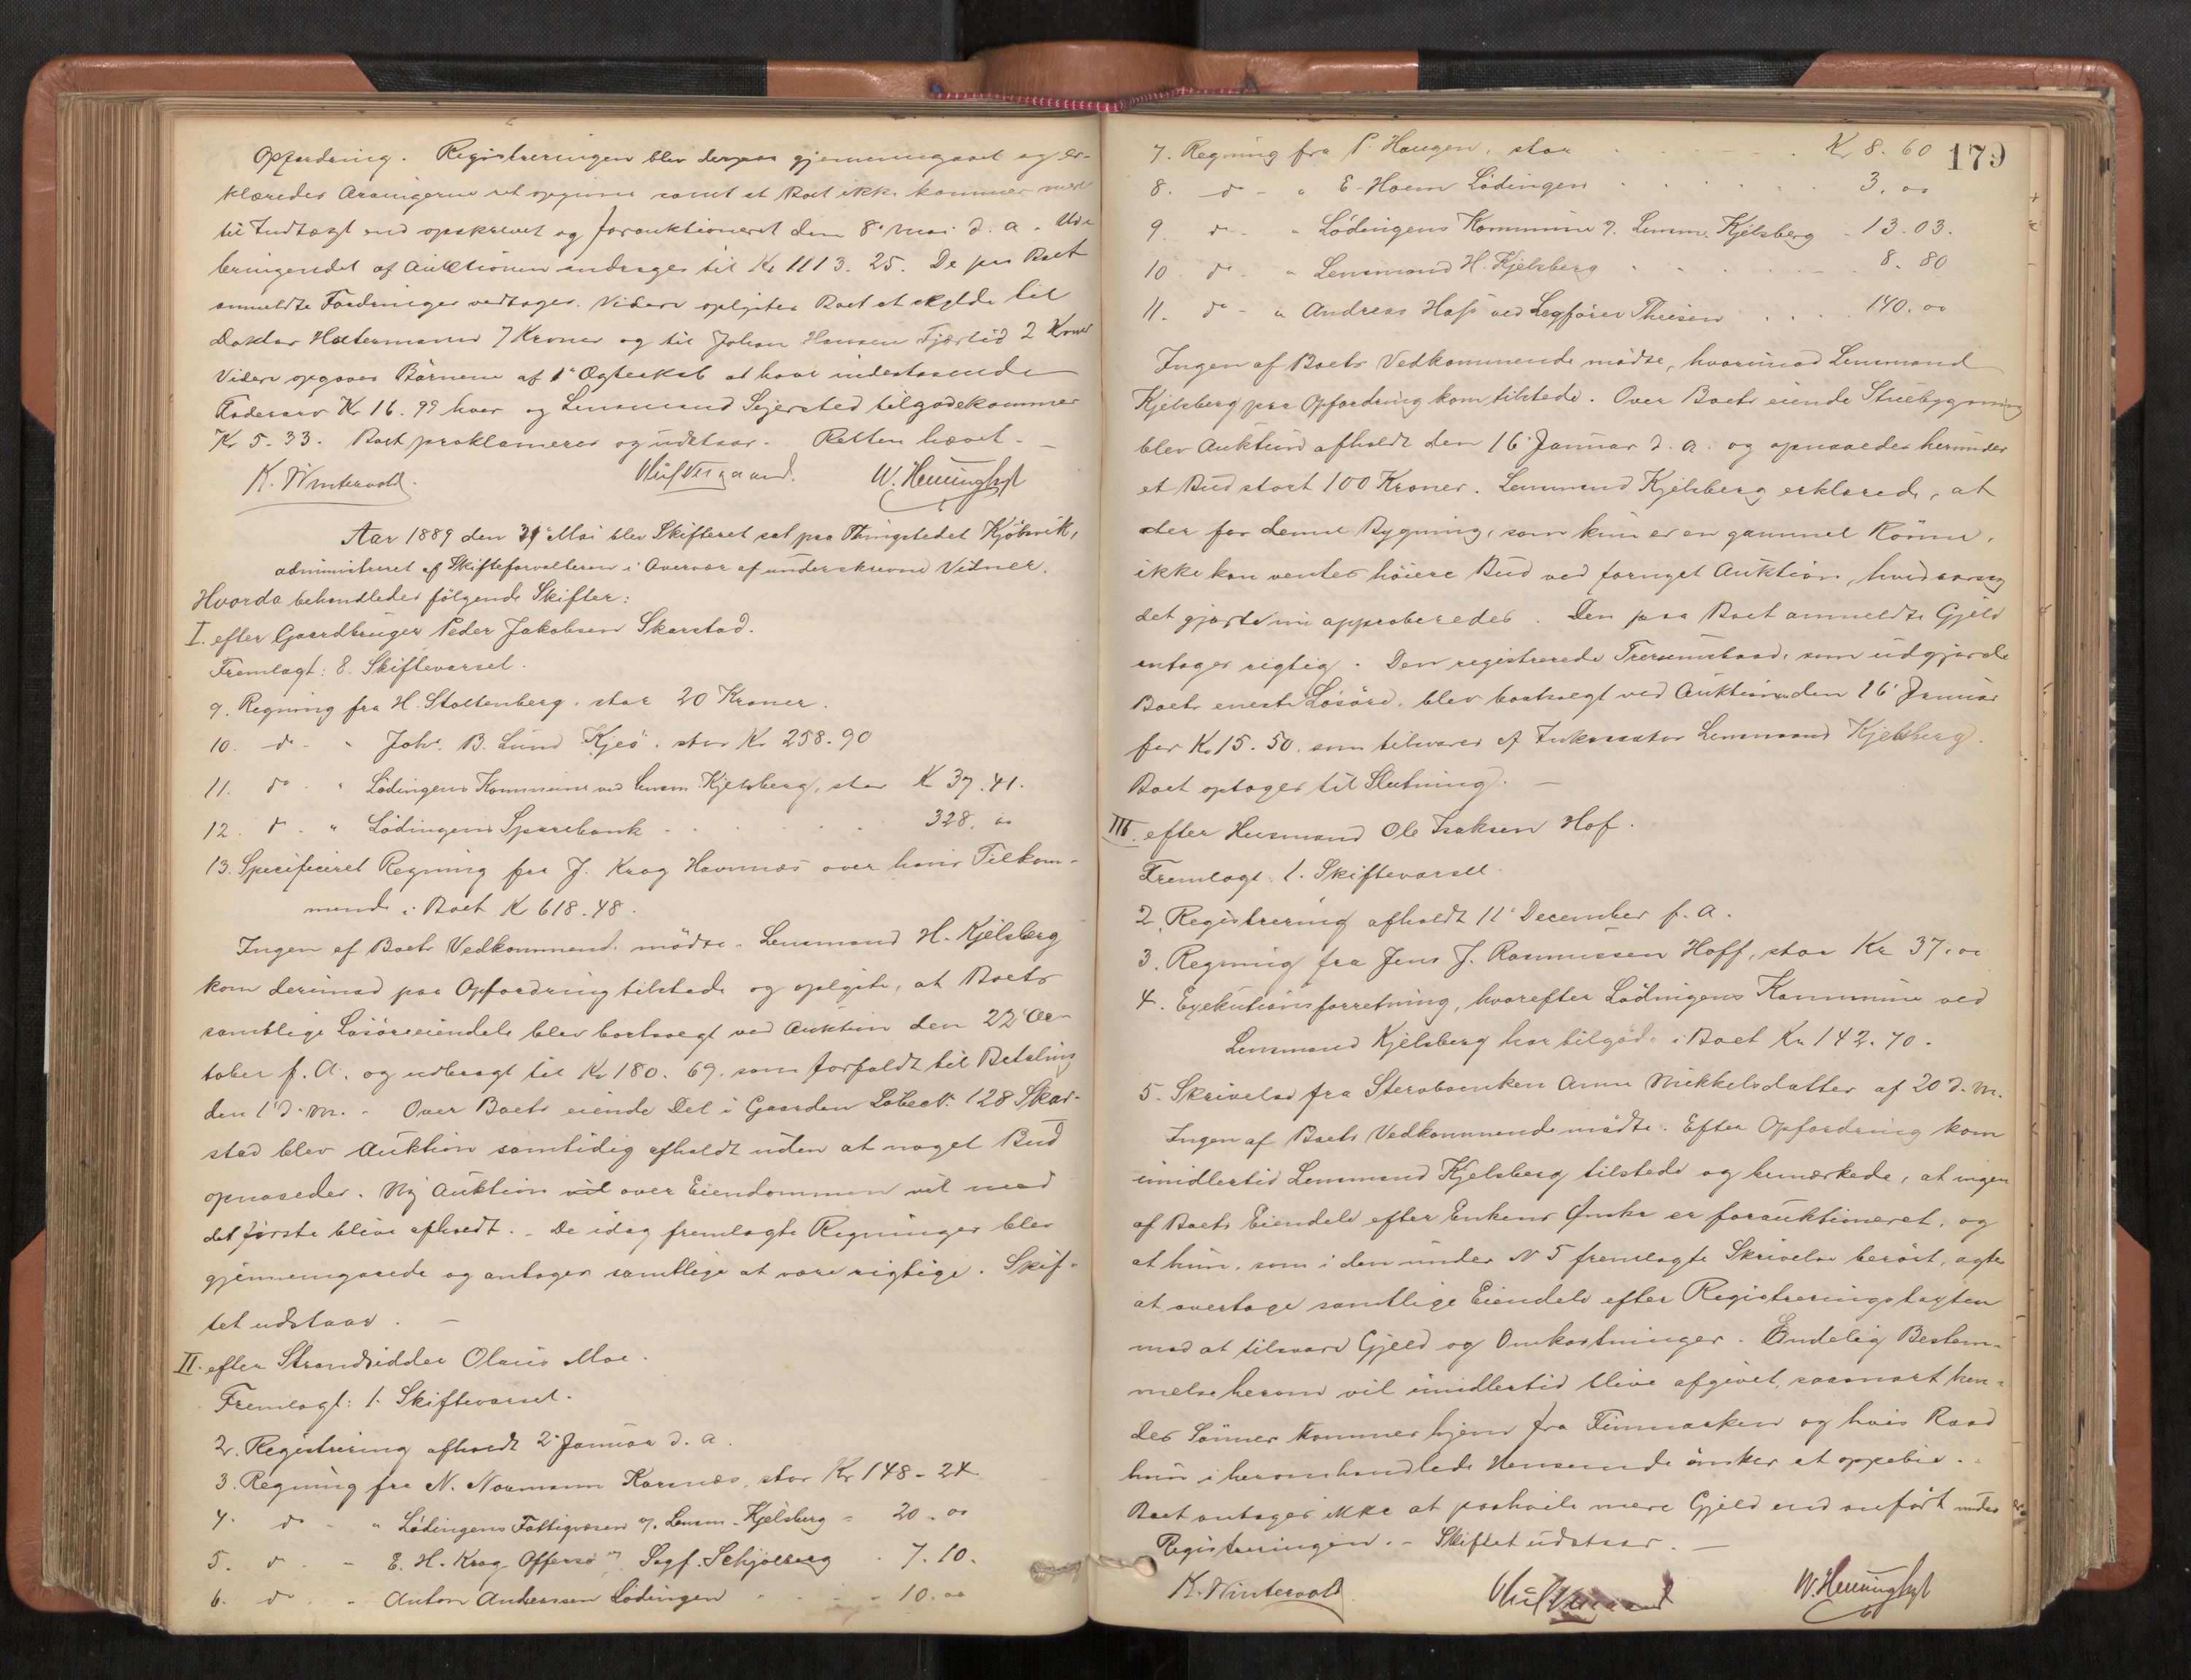 Opfordring. Registreringen blev derpaa gjennemgaaet og er-
klæredes Arvingerne ret opgiven samt at Boet ikke kommer mere
til Indtægt end opskrevet og forauktioneret den 8de Mai d. A. Ud-
bringendet af Auktionen andrager til Kr 1113.25. De paa Boet
anmeldte Fordringer vedtoges. Videre oplystes Boet at skylde til
Doktor Holtermann 7 Kroner og til Johan Hansen Fjærlid 2 Kroner
Videre opgaves Börnene af 1ste Ægteskab at have indestaaende
Fadersarv Kr 16.99 hver og Lensmand Sejersted tilgodekommer
Kr 5.33. Boet proklameres og udstaar. Retten hævet.
K. Wintervold. W. Henningsen
Aar 1889 den 31te Mai blev Skifteret sat paa Thingstedet Kjöbsvik,
administreret af Skifteforvalteren i Overvær af underskrevne Vidner.
Hvorda behandledes fölgende Skifter:
I. efter Gaardbruger Peder Jakobsen Skarstad.
Fremlagt: 8. Skiftevarsel.
9. Regning fra H. Stoltenberg, stor 20 Kroner.
10. do - " Johs. B. Lund Kjeö, stor Kr 258.90
11. do - " Lödingens Kommune ved Lensm. Kjelsberg, stor Kr 37.41.
12. do - " Lödingens Sparebank 328.00
13. Specificeret Regning fra J. Krag Havnnæs over hans Tilkom-
mende i Boet Kr 618.48.
Ingen af Boets Vedkommende mödte. Lensmand H. Kjelsberg
kom derimod paa Opfordring tilstede og oplyste, at Boets
samtlige Lösöreeiendele blev bortsolgt ved Auktion den 22de Oc-
tober f. A. og udbragt til Kr 180.69. som forfaldt til Betaling
den 1ste d. M. - Over Boets eiende Del i Gaarden Löbe No 128 Skar-
stad blev Auktion samtidig afholdt uden at noget Bud
opnaaedes. Ny Auktion vil over Eiendommen vil med
det förste blive afholdt. - De idag fremlagte Regninger blev
gjennemgaaede og antoges samtlige at være rigtige. Skif-
tet udstaar. -
II. efter Strandsidder Olaus Moe.
Fremlagt: 1. Skiftevarsel.
2. Registrering afholdt 2den Januar d. A.
3. Regning fra N. Normann Korsnæs, stor Kr 148-24
4. do - " Lödingens Fattigvæsen v. Lensm. Kjelsberg - 20.00
5. do - - E. H. Krag Offersö v. Sagf. Schjölberg - 7.10.
6. do - - Anton Andersen Lödingen - 10.00
179
7. Regning fra P. Haugen, stor Kr 8.60
8. do - " E. Hoem Lödingen 3.00
9. do - " Lödingens Kommune v. Lensm. Kjelsberg - 13.03.
10. do - " Lensmand H. Kjelsberg 8.80
11. do - " Andreas Hass ved Sagförer Thiesen 140.00
Ingen af Boets Vedkommende mödte, hvorimod Lensmand
Kjelsberg paa Opfordring kom tilstede. Over Boets eiende Stuebygning
blev Auktion afholdt den 16de Januar d. A. og opnaaedes herunder
et Bud stort 100 Kroner. Lensmand Kjelsberg erklærede, at
der for denne Bygning, som kun er en gammel Rönne,
ikke kan ventes höiere Bud ved fornyet Auktion, hvedsaarsag
det gjorte nu approberedes. Den paa Boet anmeldte Gjeld
antoges rigtig. Den registrerede Trerumsbaad, som udgjorde
Boets eneste Lösöre, blev bortsolgt ved Auktionen den 16de Januar
for Kr 15.50. som tilsvares af Inkassator Lensmand Kjelsberg.
Boet optages til Slutning. -
III. efter Husmand Ole Isaksen Hof.
Fremlagt: 1. Skiftevarsel.
2. Registrering afholdt 11te December f. A.
3. Regning fra Jens J. Rasmussen Hoff, stor Kr 37.00
4. Exekutionsforretning, hvorefter Lödingens Kommune ved
Lensmand Kjelsberg har tilgode i Boet Kr 142.70.
5. Skrivelse fra Sterboenken Anne Mikkelsdatter af 20 d. M.
Ingen af Boets Vedkommende mödte. Efter Opfordring kom
imidlertid Lensmand Kjelsberg tilstede og bemærkede, at ingen
af Boets Eiendele efter Enkens Önske er forauktioneret, og
at hun, som i den under No 5 fremlagte Skrivelse berört, agter
at overtage samtlige Eiendele efter Registreringstaxten
mod at tilsvare Gjeld og Omkostninger. Endelig Bestem-
melse herom vil imidlertid blive afgivet, saasnart hen-
des Sönner kommer hjem fra Finmarken og hvis Raad
hun i heromhandlede Henseende önsker at oppebie. -
Boet antages ikke at paahvile mere Gjeld end anfört under
Registreringen. - Skiftet udstaar. -
K. Wintervold W. Henningsen